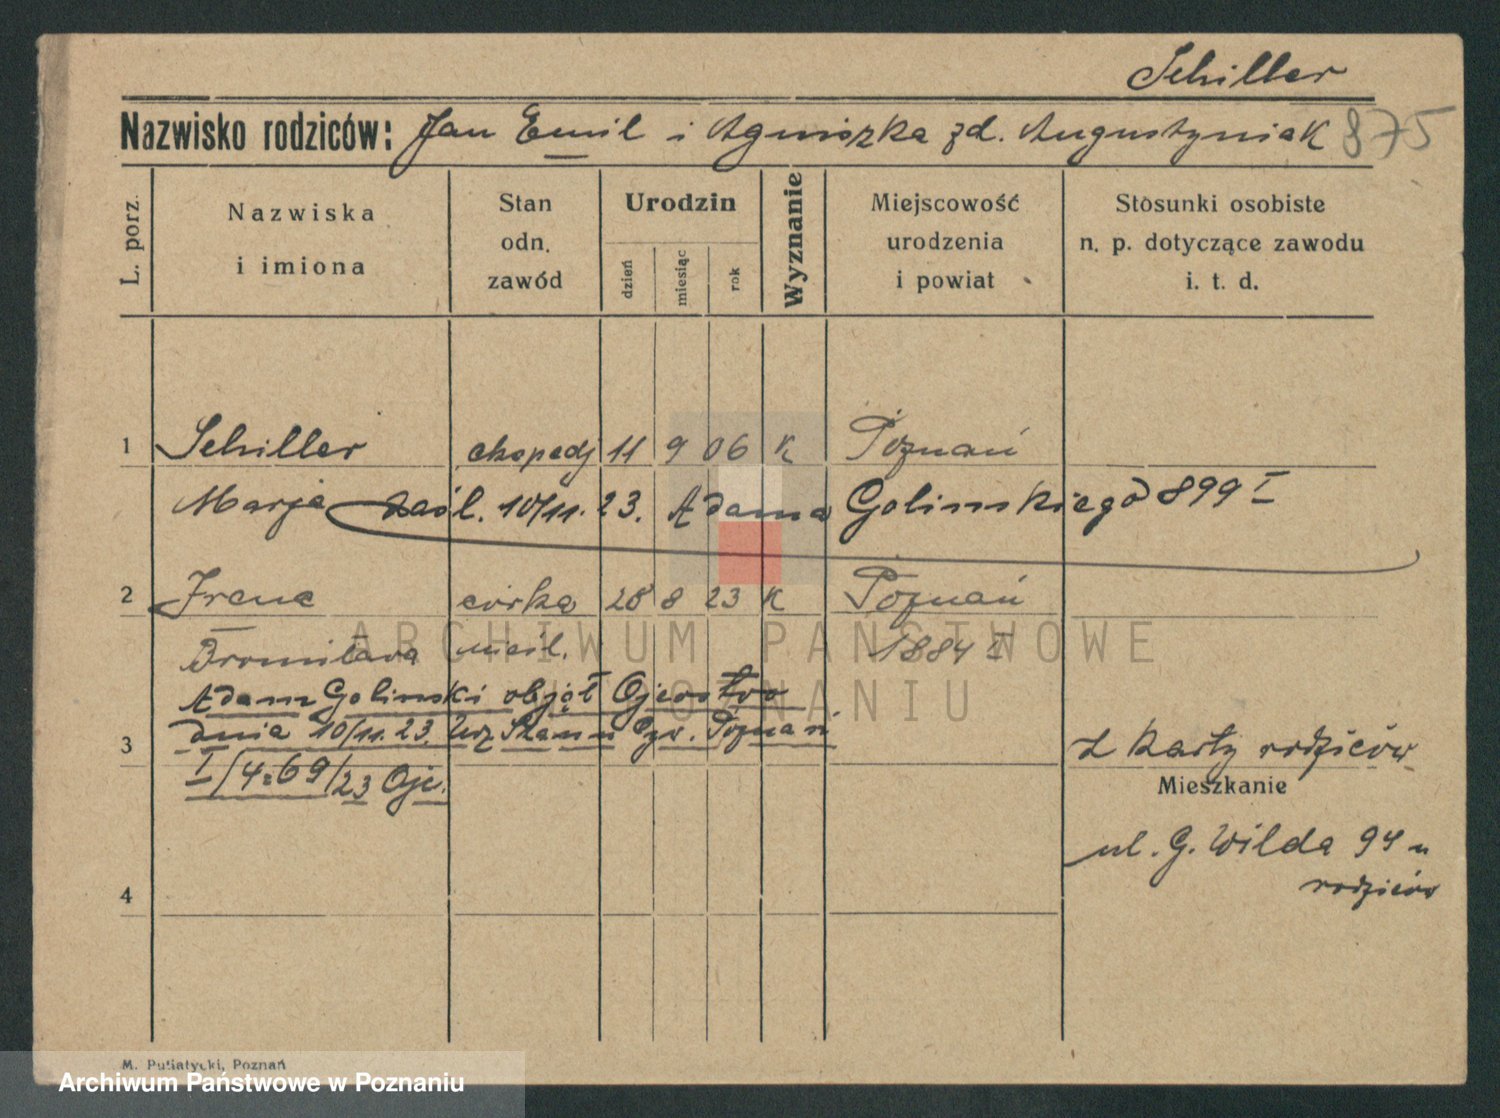 Schiller
Nazwisko rodziców: Jan Emil i Agniszka zd. Augustyniak 875
L. porz.
Nazwiska
i imiona
Stan
odn.
zawód
Urodzin
dzień
miesiąc
rok
Wyznanie
Miejscowość
urodzenia
i powiat
Stosunki osobiste
n. p. dotyczące zawodu
i. t. d.
1 Schiller ekspedj 11 9 06 K Poznań
Marja zaśl. 10/11. 23. Adama Golinskiego 899 I
2 Irena córka 28 8 23 K Poznań
Bronisława nieśl. 1884 I
Adam Golinski objął Ojcostwo
dnia 10/11. 23. Urz Stanu Cyw. Poznań
3 z karty rodziców
I/4=69/23 Ojc.
Mieszkanie
ul. G. Wilda 94 u
rodziców
4
M. Putiatycki, Poznań
ARCHIWUM PAŃSTWOWE
W POZNANIU
Archiwum Państwowe w Poznaniu